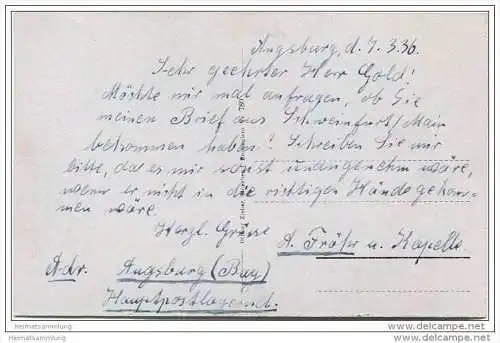 Augsburg, d. 7.3.36.
Sehr geehrter Herr Gold!
Möchte nur mal anfragen, ob Sie
meinen Brief aus Schweinfurt/Main
bekommen haben? Schreiben Sie mir
bitte, da es mir sonst unangenehm wäre,
wenn er nicht in die richtigen Hände gekom-
men wäre.
Herzl. Grüsse
A. Fröhr u. Kapelle
Adr. Augsburg (Bay)
Hauptpostlagernd.
Heimatsammlung
Heimatsammlung
www.delcampe.net